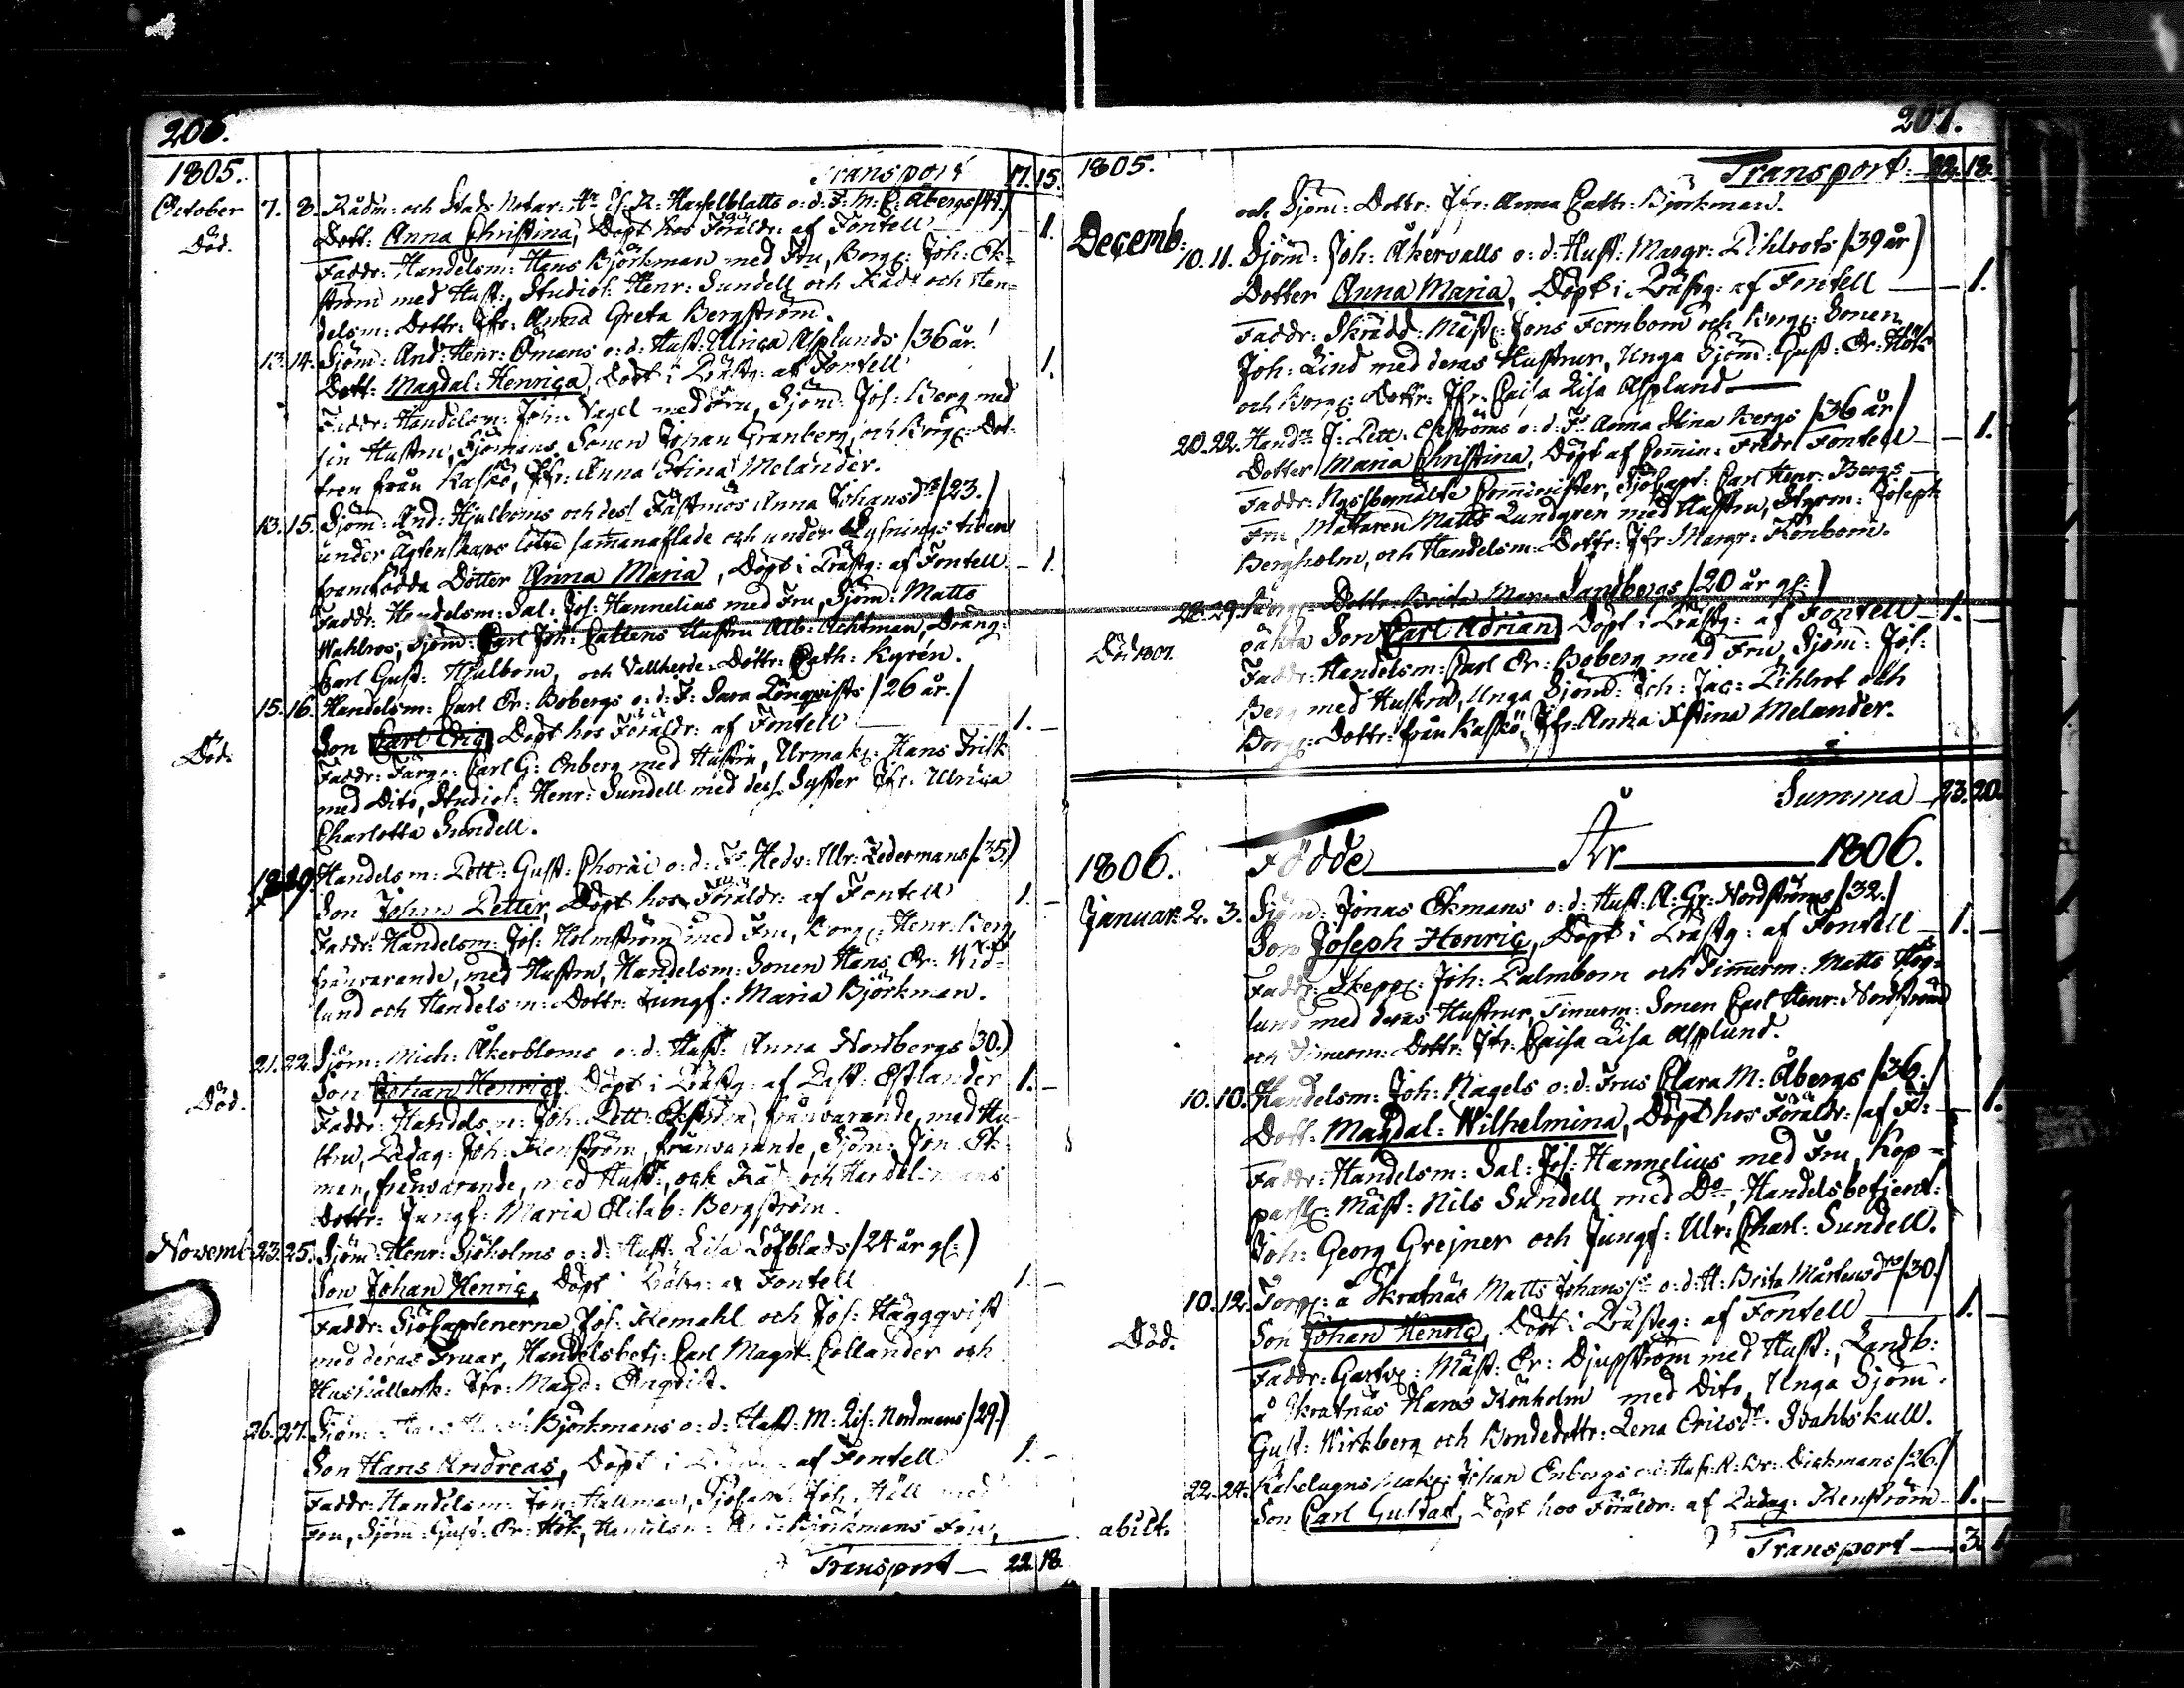 206.
1805. Transport 17. 15.
October 7. 8. Rådm: och Stads Notar: Hr Es. R. Hasselblatts o: d: F: M: C: Åbergs /41./
Död. Dott: Anna Christina, Döpt hos Föräldr: af Fontell 1.
Faddr: Handelsm: Hans Björkman med Fru, Borg: Joh: Ek-
ström med Hust:, Studios: Henr: Sundell och Råd: och Han-
delsm: Dottr: Jfr: Anna Greta Bergström.
13. 14. Sjöm: And: Henr: Ömans o: d: Hust: Ulrica Asplunds /36 år./
Dott: Magdal: Henrica, Döpt i Prästg: af Fontell 1.
Faddr: Handelsm: Joh: Nagel med Fru, Sjöm: Jos: Berg med
sin Hustru, Sjömans Sonen Johan Granberg, och Borg: Dot-
tren från Kaskö, Jfr: Anna Stina Melander.
13. 15. Sjöm: And: Hjulboms och dess Fästmös Anna Johansdr /23./
under Ägtenskaps löfte sammanaflade och under Lysnings tiden
framfödda Dotter Anna Maria, Döpt i Prästg: af Fontell 1.
Faddr: Handelsm: Sal: Jos: Hannelius med Fru, Sjöm: Matts
Wahlros, Sjöm: Carl Joh: Hustru Alb: Achtman, Dräng:
Carl Gust: Hjulbom, och Vallherde-Dottr: Cath: Kyrén.
15. 16. Handelsm: Carl Er: Bobergs o: d: F: Sara Lönqvists /26 år./
Död. Son Carl Eric, Döpt hos Föräldr: af Fontell 1.
Faddr: Färg: Carl G: Enberg med Hustru, Urmak: Hans Frisk
med Dito, Studios: Henr: Sundell med dess Syster Jfr: Ulrica
Charlotta Sundell.
19. Handelsm: Pett: Gust: Choræi o: d: Fs Hedv: Ulr: Ledermans /35./
Son Johan Petter, Döpt hos Föräldr: af Fontell 1.
Faddr: Handelsm: Jos: Holmström med Fru, Borg: Henr: Berg
frånvarande, med Hustru, Handelsm: Sonen Hans Er: Wid-
lund och Handelsm: Dottr: Jungf: Maria Björkman.
21. 22. Sjöm: Mich: Åkerbloms o: d: Hust: Anna Nordbergs /30./
Död. Son Johan Henric, Döpt i Prästg: af Past: Estlander 1.
Faddr: Handelsm: Joh: Pett: Ekström, frånvarande, med Hu-
stru, Pædag: Joh: Kenström, frånvarande, Sjöm: Jon: Ek-
man, frånvarande, med Hust:, och Råd: och Handelsmans
Dottr: Jungf: Maria Elisab: Bergström.
Novemb: 23. 25. Sjöm: Henr: Sjöholms o: d: Hust: Lisa Löfblads /24 år gl:/
Son Johan Henric, Döpt i Prästg: af Fontell 1.
Faddr: Sjöcaptenerna Jos: Kemahl och Jos: Häggqvist
med deras Fruar, Handelsbetj: Carl Magn: Collander och
Hushållersk: Jfr: Magd: Enqvist.
26. 27. Sjöm: Björkmans o: d: Hust: M: Lis: Nordmans /29./
Son Hans Andreas, Döpt i Prästg: af Fontell 1.
Faddr: Handelsm: Jon: Hallman, Sjöcapt: Joh: Häll med
Fru, Sjöm: Gust: Er: Hök, Handelsm: Björkmans Fru,
Transport 22. 18.
207.
1805. Transport 22. 18.
och Sjöm: Dottr: Jfr: Anna Cath: Björkman.
Decemb: 10. 11. Sjöm: Joh: Åkervalls o: d: Hust: Margr: Pihlrots /39 år/
Dotter Anna Maria, Döpt i Prästg: af Fontell 1.
Faddr: Skrädd: Mäst: Jöns Fernbom och Borg: Sonen
Joh: Lind med deras Hustrur, Unga Sjöm: Gust: Er: Hök
och Borg: Dottr: Jfr: Caisa Lisa Asplund
20. 22. Handm J: Pett: Ekströms o: d: Fs Anna Stina Bergs /36 år/
Dotter Maria Christina, Döpt af Commin: Fredr Fontell 1.
Faddr: Nyssbemälte Comminister, Sjöcapt: Carl Henr: Bergs
Fru, Mätaren Matts Lundgren med Hustru, Styrm: Joseph
Bergholm, och Handelsm: Dottr: Jfr: Margr: Rönbom.
28. 29. Dottr: Brita Mar: Sandbergs /20 år gl:/
Död 1807. oäkta Son Carl Adrian, Döpt i Prästg: af Fontell 1.
Faddr: Handelsm: Carl Er: Boberg med Fru, Sjöm: Jos:
Berg med Hustru, Unga Sjöm: Joh: Jac: Pihlrot och
Borg: Dottr: från Kaskö, Jfr: Anna Stina Melander.
Summa 23. 20.
1806. Födde År 1806.
Januar: 2. 3. Sjöm: Jonas Ekmans o: d: Hust: A: Gr: Nordströms /32./
Son Joseph Henric, Döpt i Prästg: af Fontell 1.
Faddr: Skepp: Joh: Palmbom och Timerm: Matts Hög-
lund med deras Hustrur, Timerm: Sonen Carl Henr: Nordström
och Timerm: Dottr: Jfr: Caisa Lisa Asplund.
10. 10. Handelsm: Joh: Nagels o: d: Frus Clara M: Åbergs /36./
Dott: Magdal: Wilhelmina, Döpt hos Föräldr: af F: 1.
Faddr: Handelsm: Sal: Jos: Hannelius med Fru, Kop-
parsl: Mäst: Nils Sundell med Do, Handelsbetjent:
Joh: Georg Grejner och Jungf: Ulr: Charl: Sundell.
10. 12. Torp: å Skratnäs Matts Johanss: o: d: H: Brita Mårtensdr /30./
Död. Son Johan Henric, Döpt i Prästeg: af Fontell 1.
Faddr: Garfv: Mäst: Er: Djupström med Hust:, Landb:
å Skratnäs Hans Rönholm med Dito, Unga Sjöm:
Gust: Wirkberg och Bondedottr: Lena Ericsdr Svahlskull.
22. 24. Kakelugnsmak: Johan Enbergs o: d: Hust: A: Br: Dickmans /26./
abiit. Son Carl Gustaf, Döpt hos Föräldr: af Pædag: Kenström 1.
Transport 3. 1